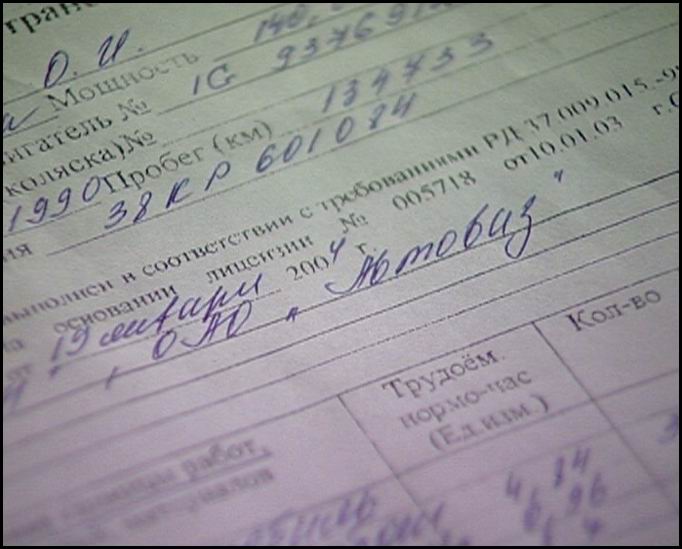 О. И.
Мощность 140,
вигатель № 1G 9376912
коляска) №
1990 Пробег (км) 134733
38 К Р 601084
выполнен в соответствии с требованиями РД 37.009.015.-9
основании лицензии № 005718 от 10.01.03 г.
19 января 2004 г.
ОАО „Автоваз"
Трудоём.
нормо-час
(Ед.изм.)
Кол-во
работ,
материалов
4,84
6,96